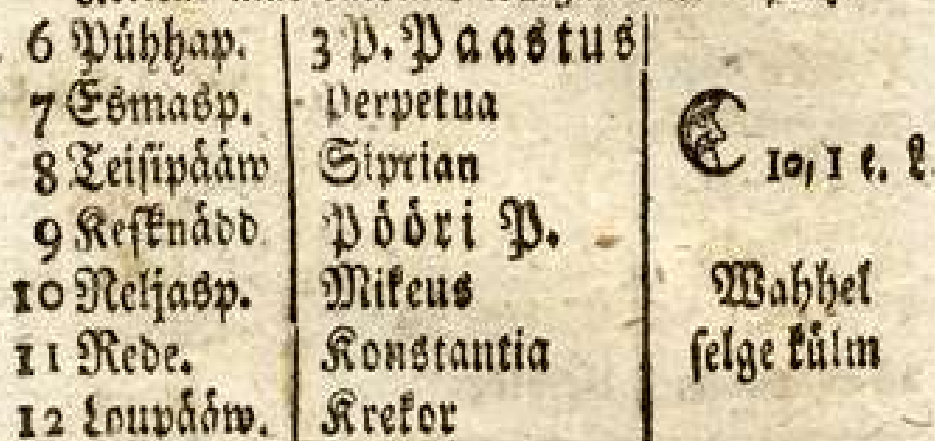 6 Pühhap. 3 P. Paastus
7 Esmasp. Perpetua
8 Teisipääw Siprian 10, 1 e. L.
9 Kesknädd Pööri P.
10 Neljasp. Mikeus Wahhel
11 Rede. Konstantia selge külm
12 Loupääw. Krekor